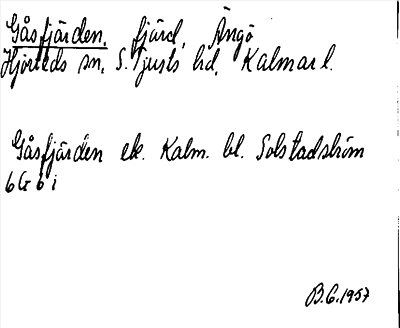 Gåsfjärden, fjärd, Ängö
Hjorteds sn, S. Tjusts hd, Kalmar l.
Gåsfjärden ek. Kalm. bl. Solstadström
6G 6 i
B.G. 1957